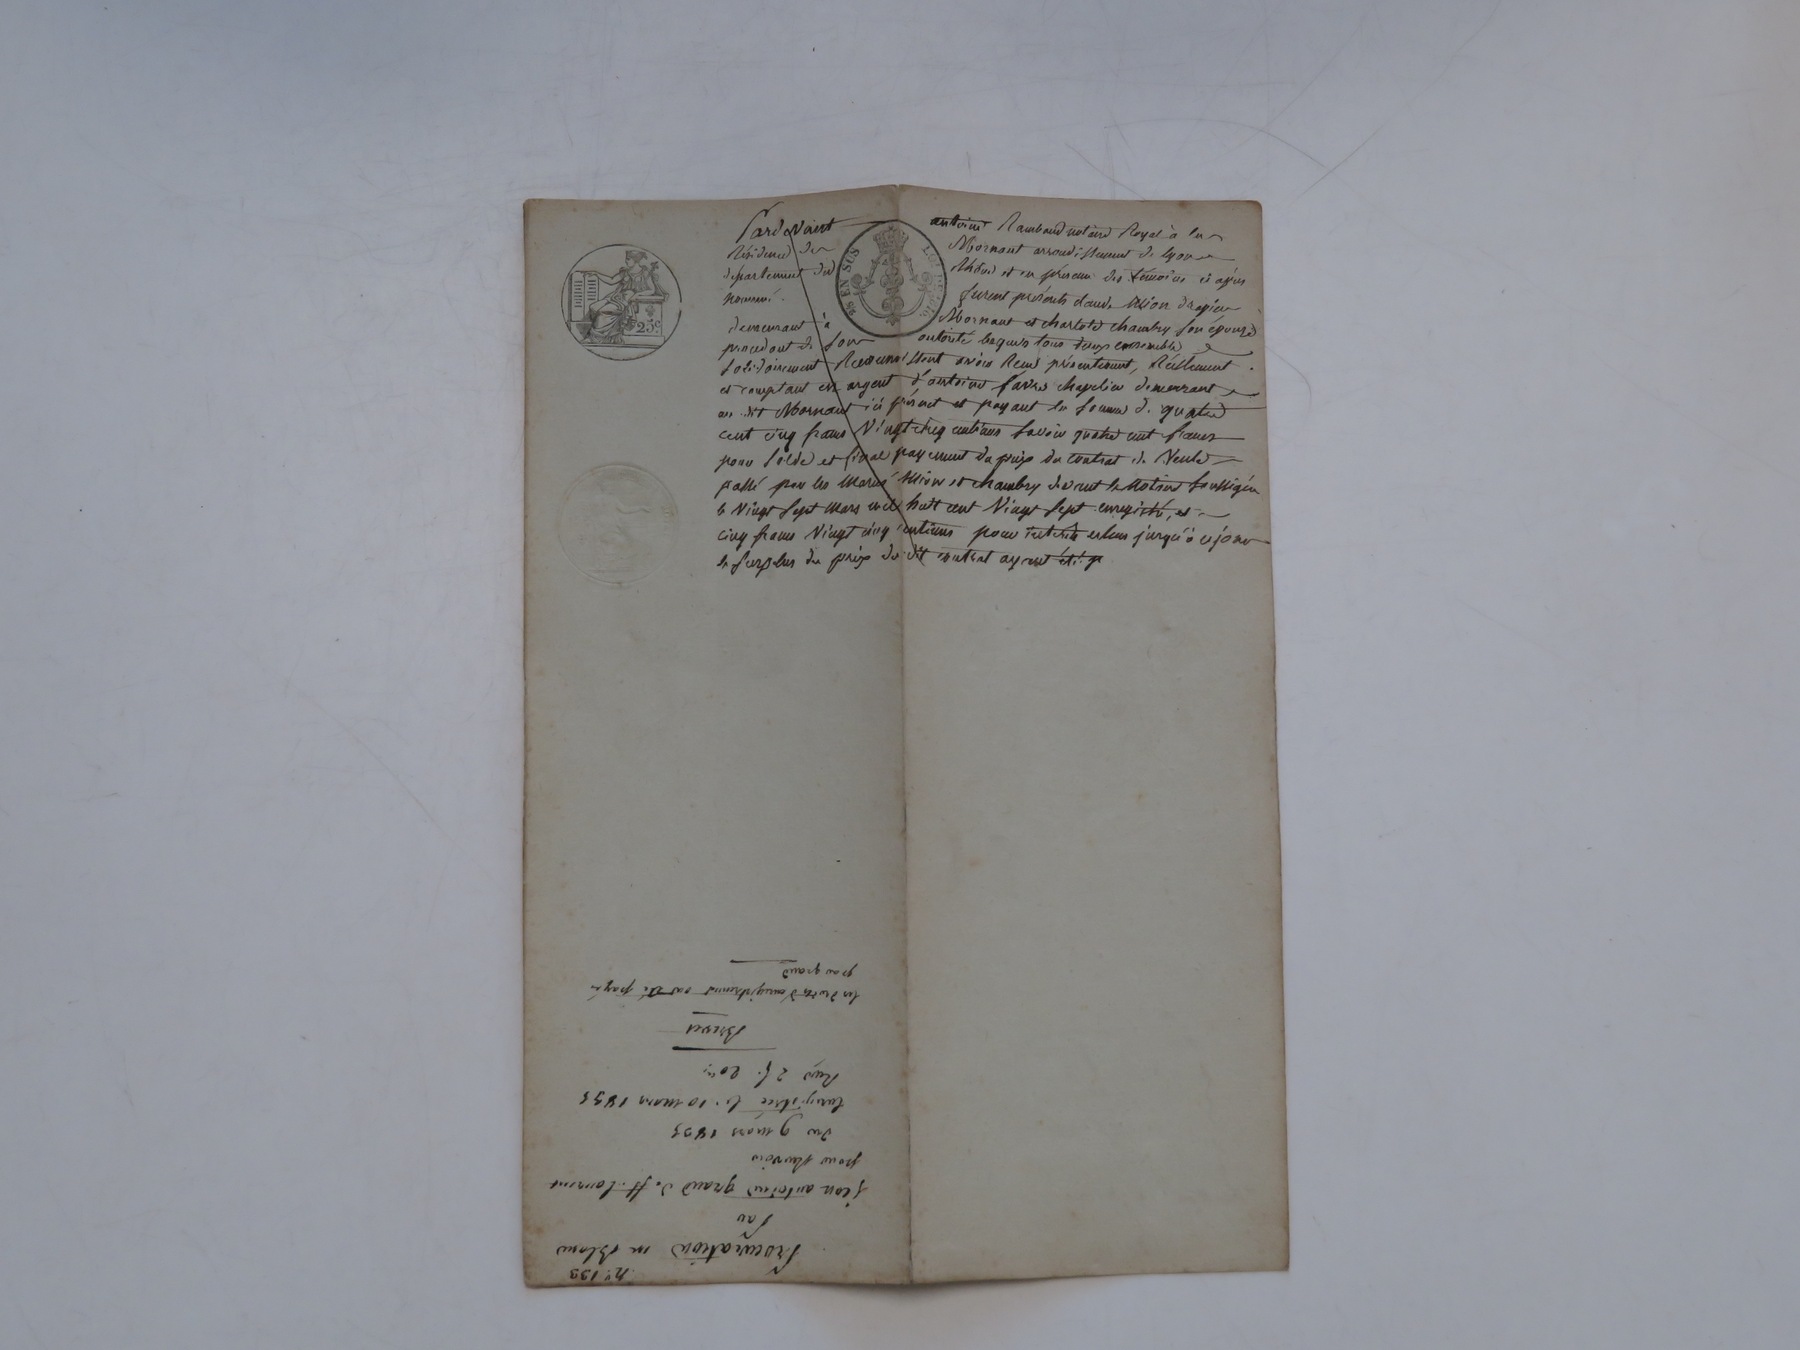 Pardevant antoine Rambaud notaire Royal à la
Résidence de Mornant arrondissement de Lyon
département du Rhône et en présence des témoins ci après
nommés. furent présents
demeurant à Mornant et charlote chambry son épouse
procedant de son autorité lesquels tous deux ensemble
solidairement Reconnaissent avoir Reçu présentement, Réellement
et comptant en argent d'antoine favre chapelier demeurant
au dit Mornant ici présent et payant la somme de quatre
cent cinq francs Vingt cinq centimes savoir quatre cent francs
pour solde et final payement du prix du contrat de Vente
passé par les Mariés et chambry devant le Notaire soussigné
le Vingt sept Mars mil huit cent Vingt sept enregistré, et
cinq francs Vingt cinq centimes pour intérêts jusqu'à ce jour
le surplus du prix du dit contrat ayant été p
25c
25 EN SUS
nº 133
Procuration en Blanc
Par
jean antoine grand de st. laurent
pour
du 9 mars 1833
Enregistrée le 10 mars 1833
Reçu 2 f. 20 c.
Brevet
les droits d'enregistrement ont été payés
par grand